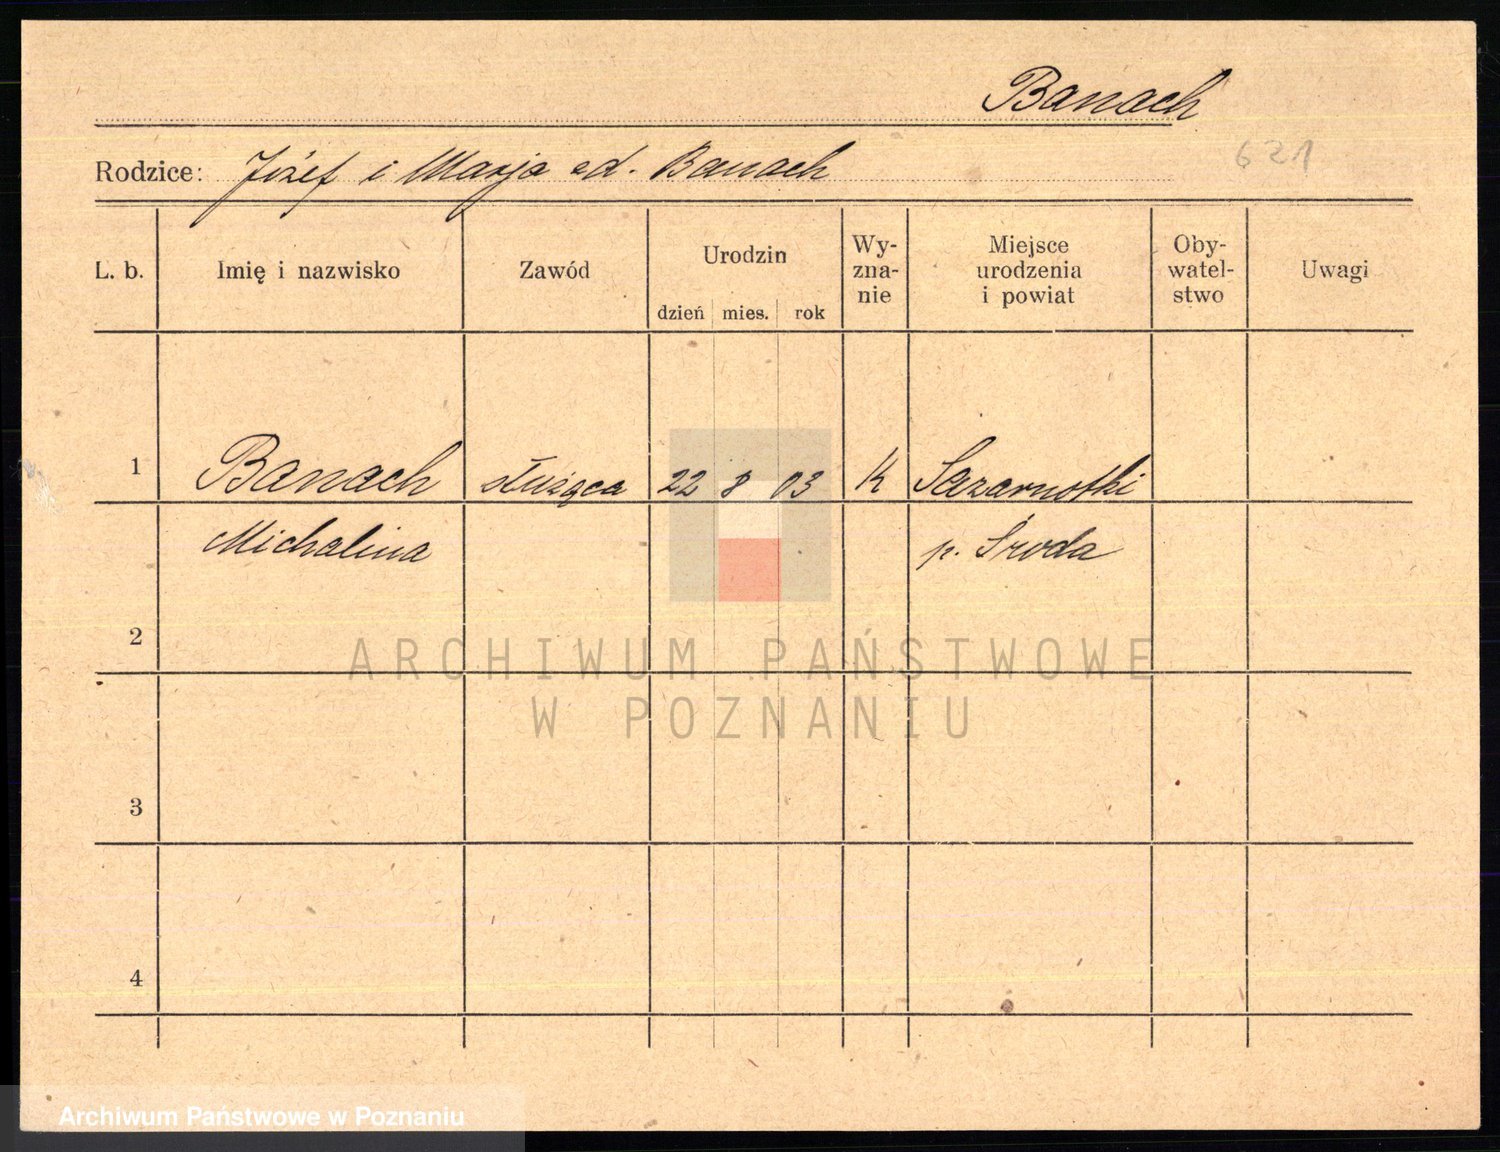 Banach
621
Rodzice: Józef i Marja ed. Banach
L. b. Imię i nazwisko Zawód Urodzin Wy-zna-nie Miejsce urodzenia i powiat Oby-watel-stwo Uwagi
dzień mies. rok
1 Banach służąca 22 8 03 K
Michalina p. Środa
2
ARCHIWUM PAŃSTWOWE
W POZNANIU
3
4
Archiwum Państwowe w Poznaniu